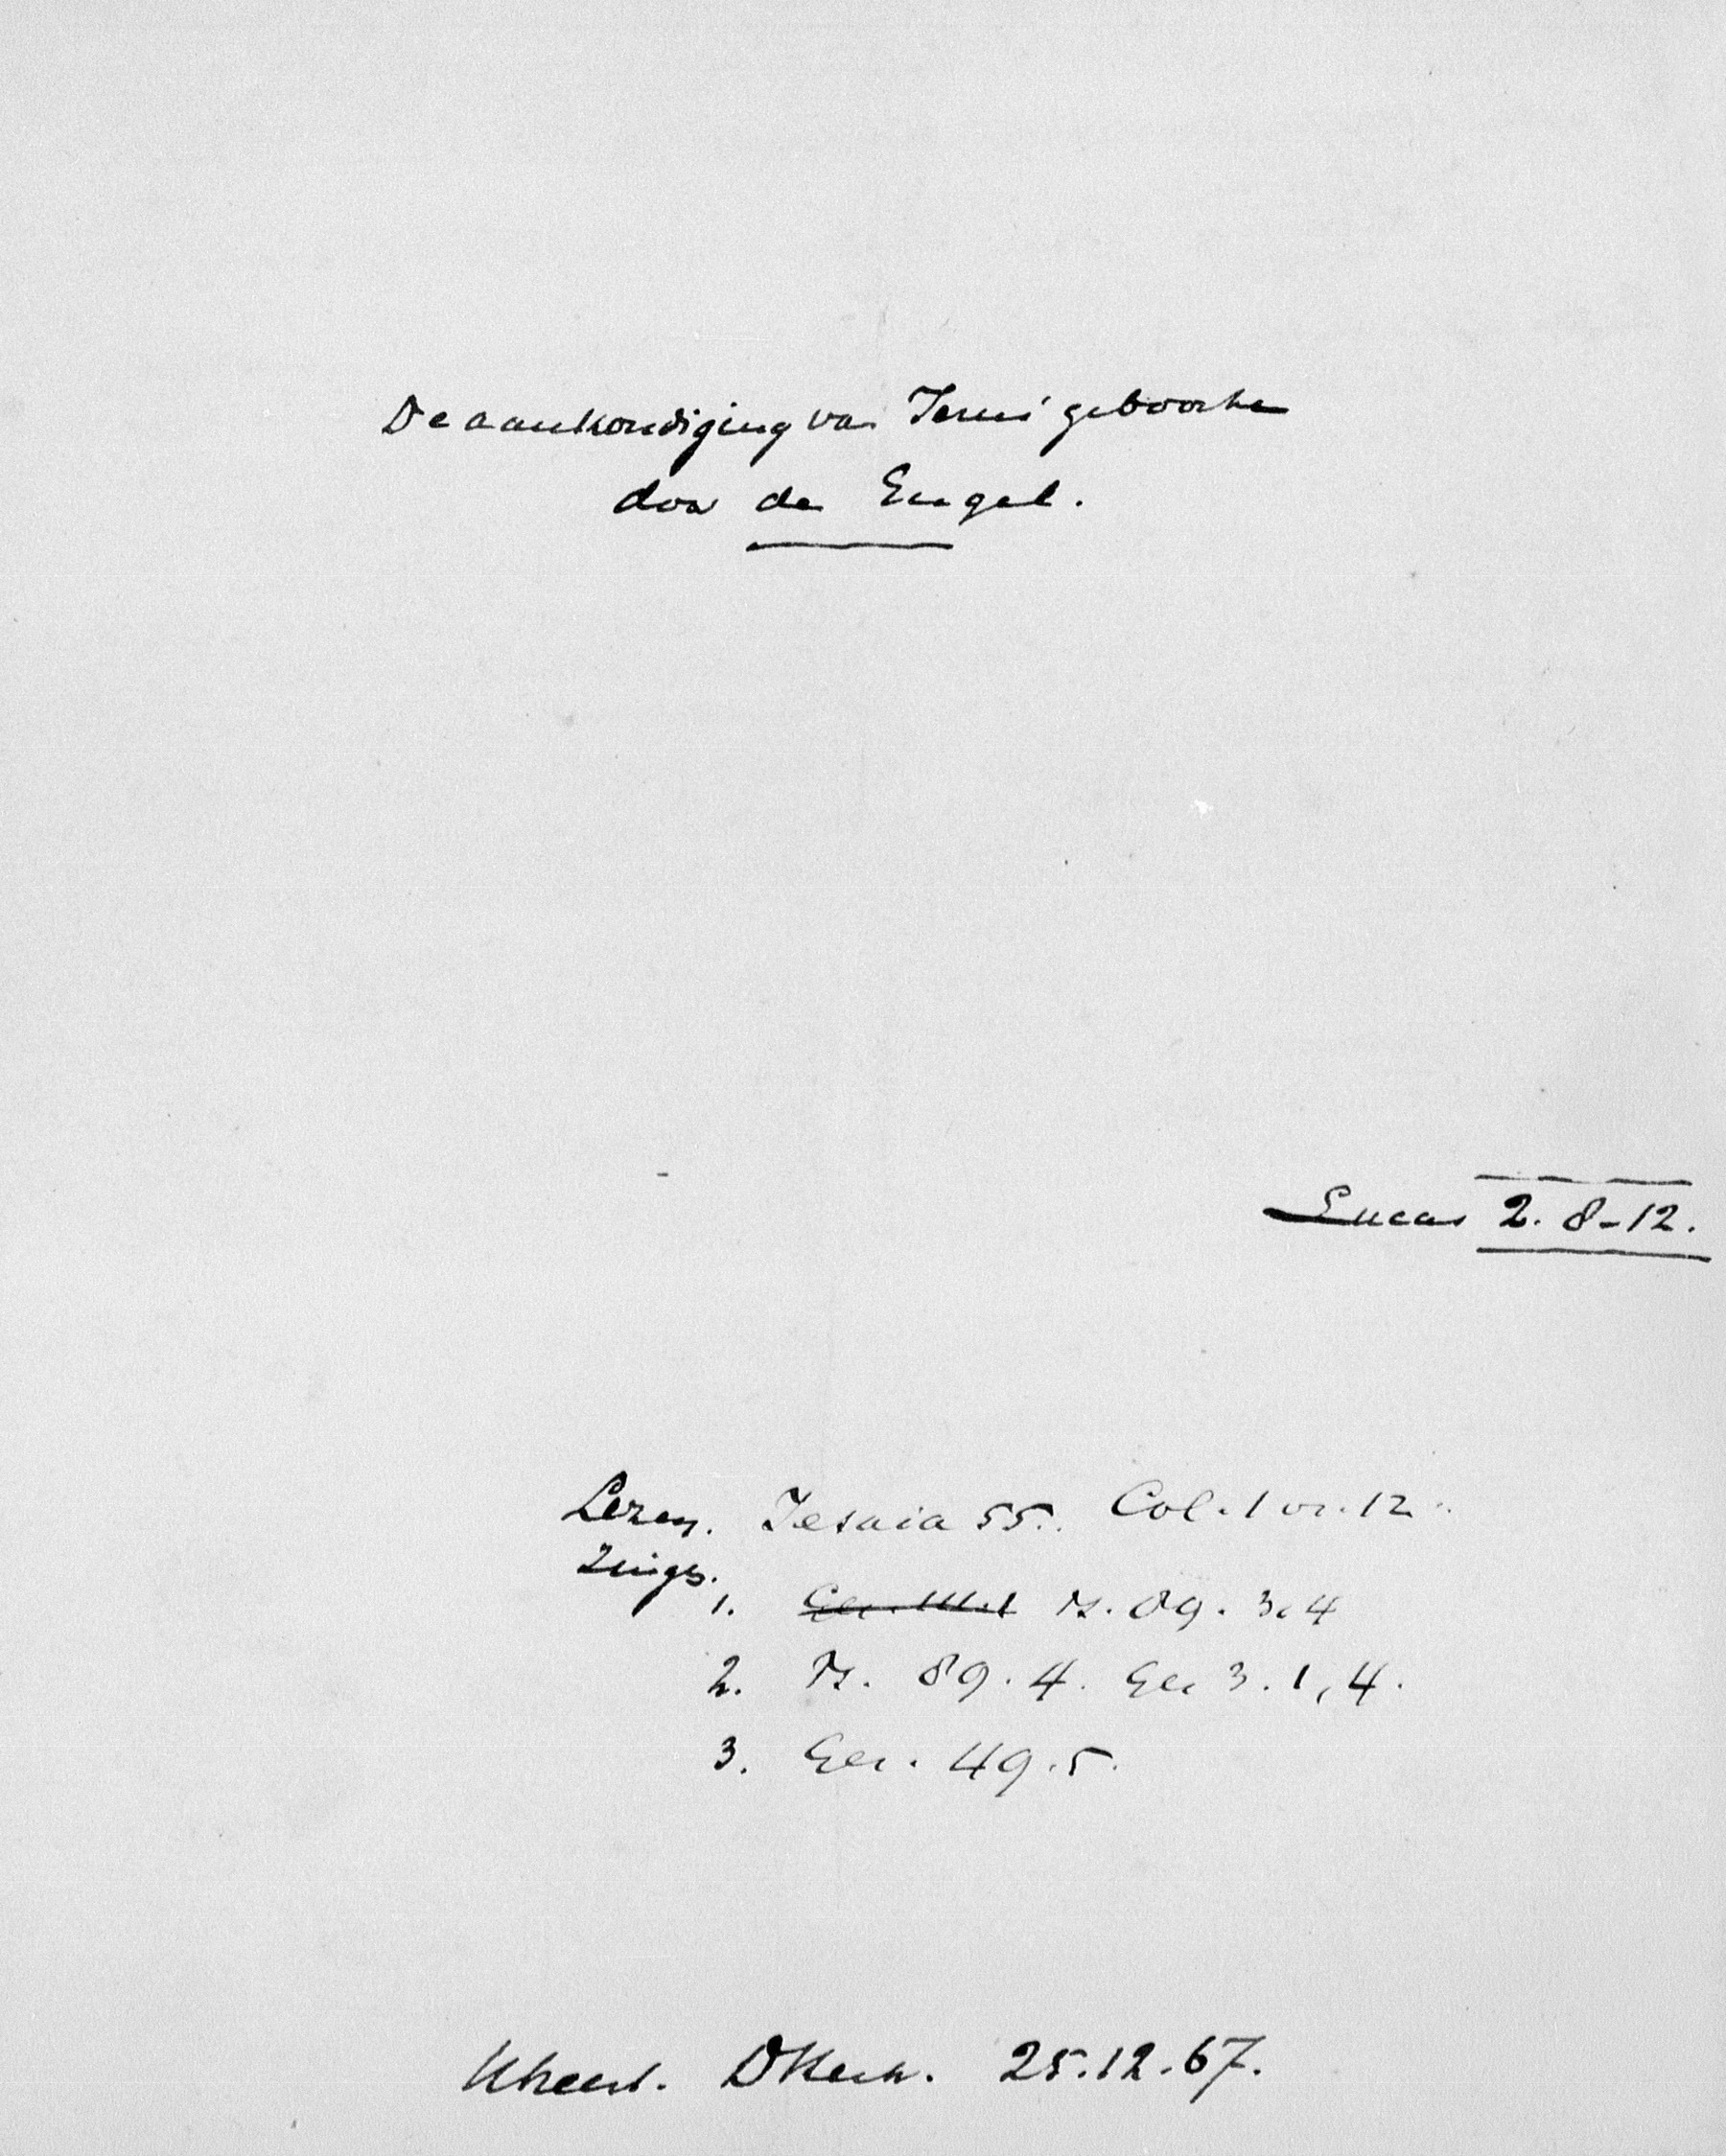 De aankondiging van Jezus' geboorte
door de Engel.
Lucas 2. 8-12.
Lezen. Jesaia 55. Col. 1 vs. 12.
Zinge.
1. Gez. 111.1 Ps. 89. 3, 4
2. Ps. 89. 4. Gez 3. 1, 4.
3. Gez. 49. 5.
DKerk. 25.12.67.